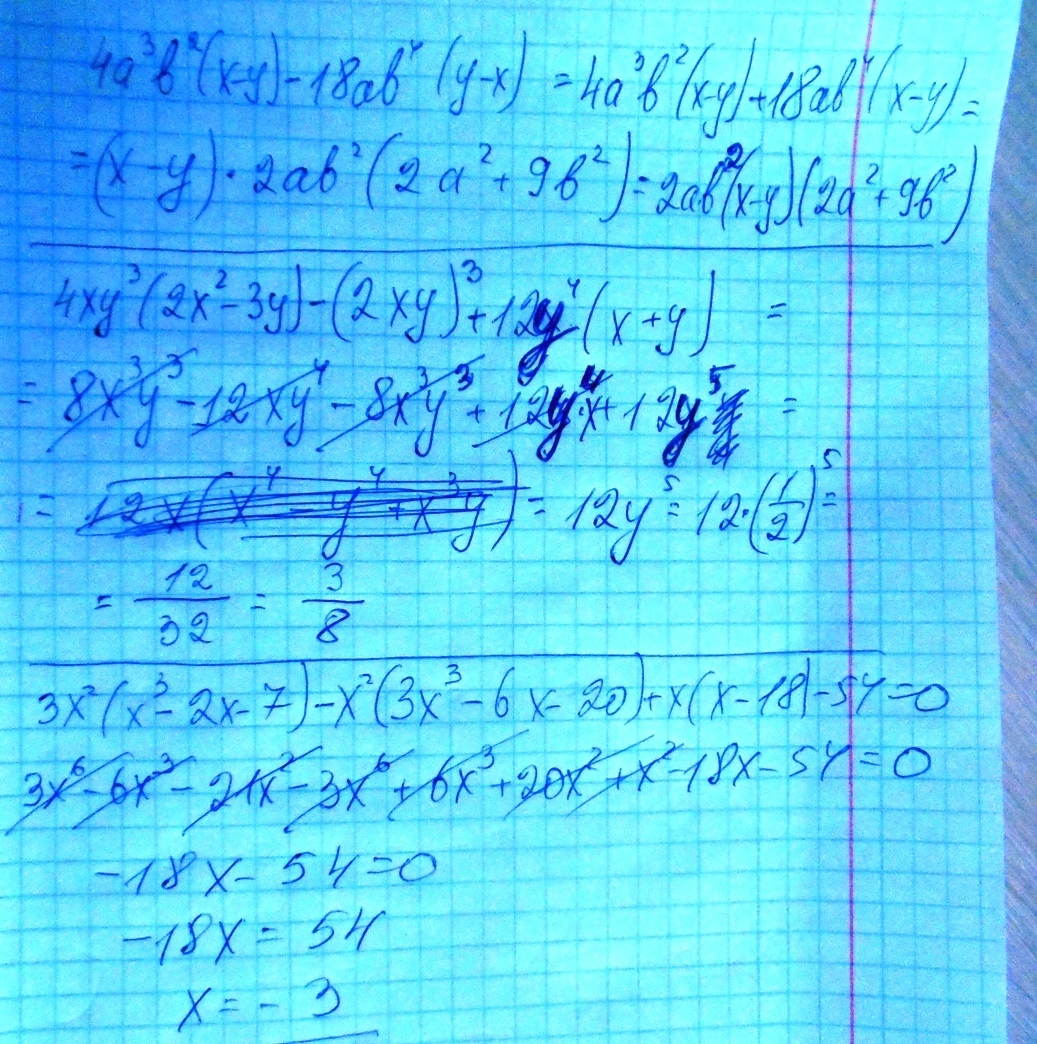 4a³b²(x-y)-18ab⁴(y-x)=4a³b²(x-y)+18ab⁴(x-y)=
=(x-y)·2ab²(2a²+9b²)=2ab²(x-y)(2a²+9b²)
4xy³(2x²-3y)-(2xy)³+12y⁴(x+y) =
= 8x³y³-12xy⁴-8x³y³+12y⁴·x+12y⁵ =
= 12x(x⁴-y⁴+x³y) = 12y⁵=12·(1/2)⁵=
= 12/32 = 3/8
3x²(x³-2x-7)-x²(3x³-6x-20)+x(x-18)-54=0
3x⁶-6x³-21x²-3x⁶+6x³+20x²+x²-18x-54=0
-18x-54=0
-18x=54
x=-3